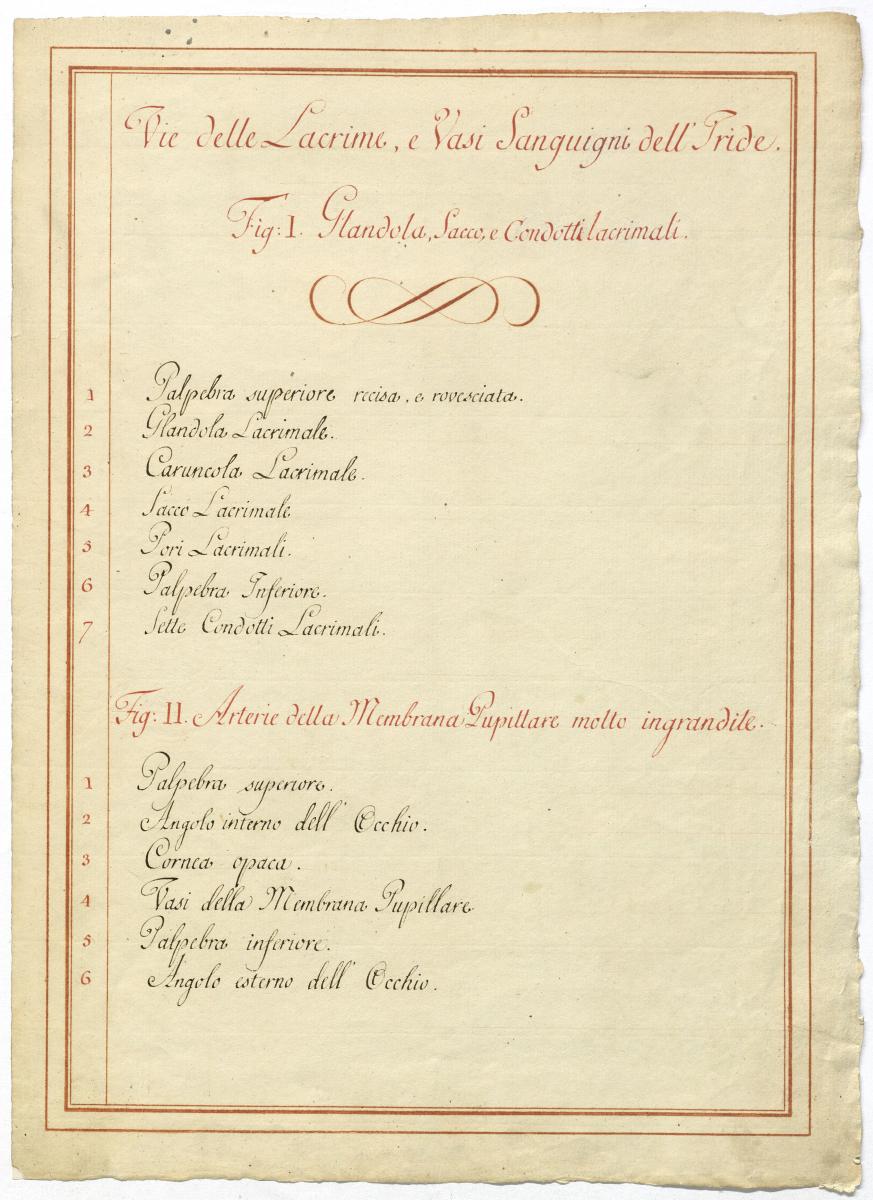 Vie delle Lacrime, e Vasi Sanguigni dell' Iride.
Fig: I. Glandola, Sacco, e Condotti lacrimali.
1 Palpebra superiore recisa, e rovesciata.
2 Glandola Lacrimale.
3 Caruncola Lacrimale.
4 Sacco Lacrimale
5 Pori Lacrimali.
6 Palpebra Inferiore.
7 Sette Condotti Lacrimali.
Fig: II. Arterie della Membrana Pupillare molto ingrandite.
1 Palpebra superiore.
2 Angolo interno dell' Occhio.
3 Cornea opaca.
4 Vasi della Membrana Pupillare
5 Palpebra inferiore.
6 Angolo esterno dell' Occhio.